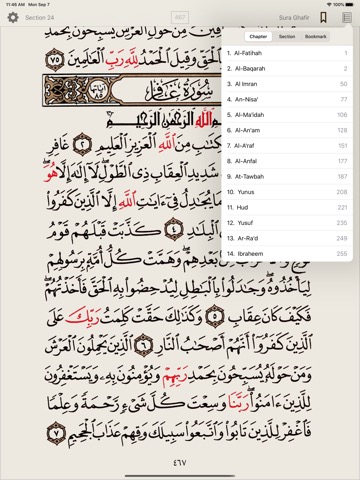 11:46 AM Mon Sep 7
100%
Section 24
467
Sura Ghafir
Chapter Section Bookmark
1. Al-Fatihah 1
2. Al-Baqarah 2
3. Al Imran 50
4. An-Nisa' 77
5. Al-Ma'idah 106
6. Al-An'am 128
7. Al-A'raf 151
8. Al-Anfal 177
9. At-Tawbah 187
10. Yunus 208
11. Hud 221
12. Yusuf 235
13. Ar-Ra'd 249
14. Ibraheem 255
يُسَبِّحُونَ بِحَمْدِ
وَقِيلَ الْحَمْدُ لِلَّهِ رَبِّ الْعَالَمِينَ ٧٥
سُورَةُ غَافِرٍ
اللَّهِ الرَّحْمَٰنِ الرَّحِيمِ
الْكِتَابِ مِنَ اللَّهِ الْعَزِيزِ الْعَلِيمِ ٢ غَافِرِ
شَدِيدِ الْعِقَابِ ذِي الطَّوْلِ لَا إِلَٰهَ إِلَّا هُوَ
مَا يُجَادِلُ فِي آيَاتِ اللَّهِ إِلَّا الَّذِينَ كَفَرُوا
الْبِلَادِ ٤ كَذَّبَتْ قَبْلَهُمْ قَوْمُ
مِنْ بَعْدِهِمْ وَهَمَّتْ كُلُّ أُمَّةٍ بِرَسُولِهِمْ
لِيَأْخُذُوهُ وَجَادَلُوا بِالْبَاطِلِ لِيُدْحِضُوا بِهِ الْحَقَّ فَأَخَذْتُهُمْ
فَكَيْفَ كَانَ عِقَابِ ٥ وَكَذَٰلِكَ حَقَّتْ كَلِمَتُ رَبِّكَ عَلَى
الَّذِينَ كَفَرُوا أَنَّهُمْ أَصْحَابُ النَّارِ ٦ الَّذِينَ يَحْمِلُونَ الْعَرْشَ
وَمَنْ حَوْلَهُ يُسَبِّحُونَ بِحَمْدِ رَبِّهِمْ وَيُؤْمِنُونَ بِهِ وَيَسْتَغْفِرُونَ
لِلَّذِينَ آمَنُوا رَبَّنَا وَسِعْتَ كُلَّ شَيْءٍ رَحْمَةً وَعِلْمًا
فَاغْفِرْ لِلَّذِينَ تَابُوا وَاتَّبَعُوا سَبِيلَكَ وَقِهِمْ عَذَابَ الْجَحِيمِ ٧
٤٦٧